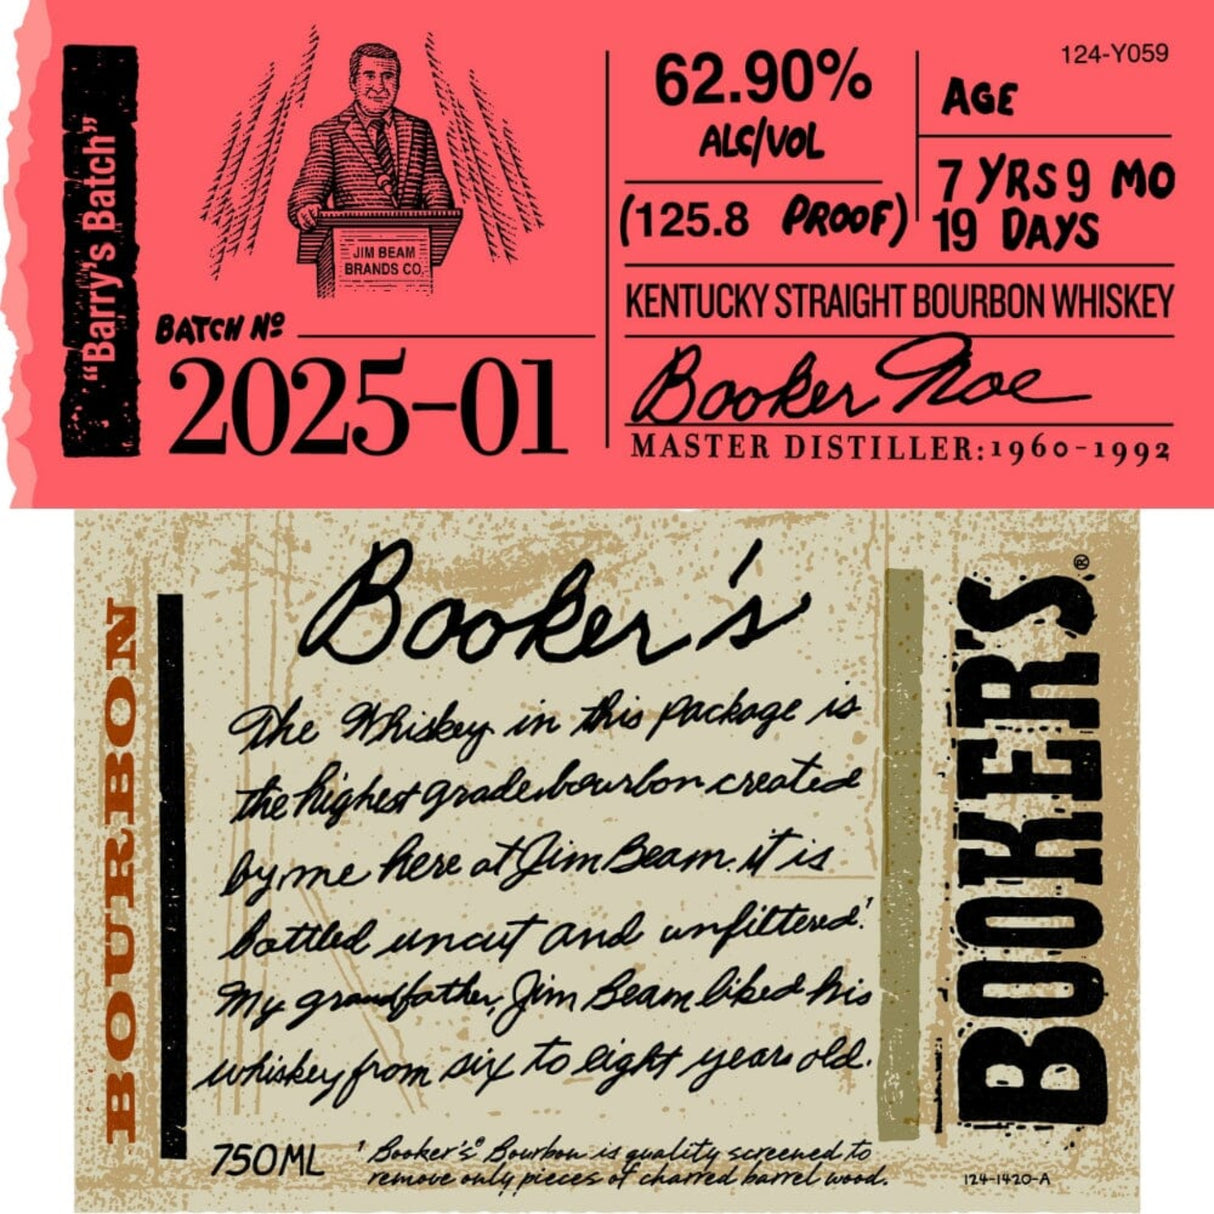 124-Y059
"Barry's Batch"
JIM BEAM
BRANDS CO.
BATCH Nº
2025-01
62.90%
ALC/VOL
(125.8 PROOF)
AGE
7 YRS 9 MO
19 DAYS
KENTUCKY STRAIGHT BOURBON WHISKEY
Booker Noe
MASTER DISTILLER:1960-1992
BOURBON
Booker's
The Whiskey in this package is
the highest grade bourbon created
by me here at Jim Beam. it is
bottled uncut and unfiltered.¹
My grandfather, Jim Beam liked his
whiskey from six to eight years old.
750ML
¹ Booker's® Bourbon is quality screened to
remove only pieces of charred barrel wood.
BOOKER'S®
124-1420-A